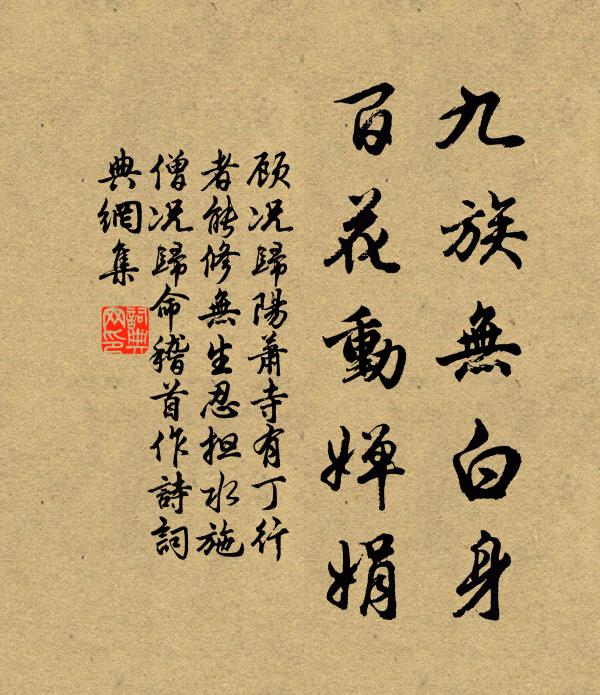 九族無白身
百花動嬋娟
顾况歸陽蕭寺有丁行
者能修無生忍担水施
僧况歸命稽首作詩詞
典網集
詞典
网印